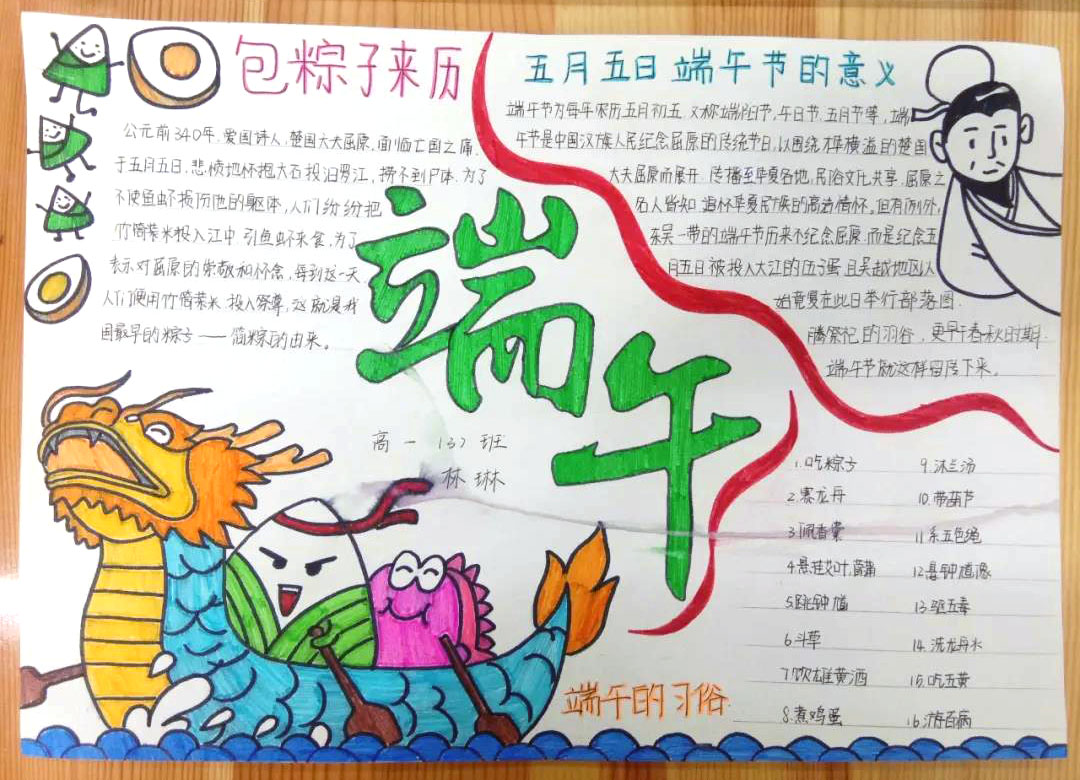 包粽子来历
公元前340年，爱国诗人，楚国大夫屈原，面临亡国之痛，
于五月五日，悲愤地怀抱大石投汨罗江，捞不到尸体，为了
不使鱼虾损伤他的躯体，人们纷纷把
竹筒装米投入江中，引鱼虾来食，为了
表示对屈原的崇敬和怀念，每到这一天，
人们便用竹筒装米，投入祭尊，这就是我
国最早的粽子——筒粽的由来。
五月五日端午节的意义
端午节为每年农历五月初五，又称端阳节，午日节，五月节等，端
午节是中国汉族人民纪念屈原的传统节日，以围绕才华横溢的楚国
大夫屈原而展开，传播至华夏各地，民俗文化共享，屈原之
名人皆知，追怀华夏民族的高洁情怀，但有例外，
东吴一带的端午节历来不纪念屈原，而是纪念五
月五日被投入大江的伍子蛋，且吴越地区以
始竟夏在此日举行部落图
腾祭祀的习俗，更早于春秋时期，
端午节就这样留传下来。
端午
高一（3）班
林琳
1.吃粽子
2.赛龙舟
3.佩香囊
4.悬挂艾叶，菖蒲
5.跳钟馗
6.斗草
7.饮雄黄酒
8.煮鸡蛋
9.沐兰汤
10.带葫芦
11.系五色绳
12.悬钟馗像
13.驱五毒
14.洗龙舟水
15.吃五黄
16.游百病
端午的习俗